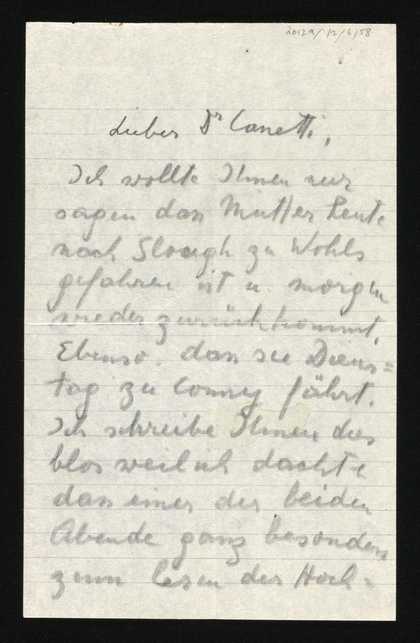 2012a/12/6/58
Lieber Dr Canetti,
Ich wollte Ihnen nur
sagen dass Mutter heute
nach Slough zu Wohls
gefahren ist u. morgen
wieder zurückkommt.
Ebenso. dass sie Diens=
tag zu Conny fährt.
Ich schreibe Ihnen dies
blos weil ich dachte
dass einer der beiden
Abende ganz besonders
zum lesen der Hoch=